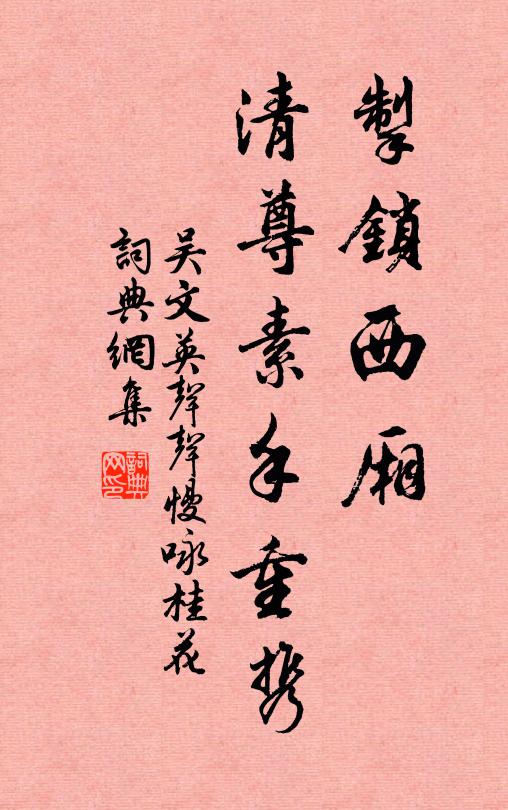 掣鎖西廂
清尊素手重携
吴文英聲聲慢咏桂花
詞典網集
詞典网印